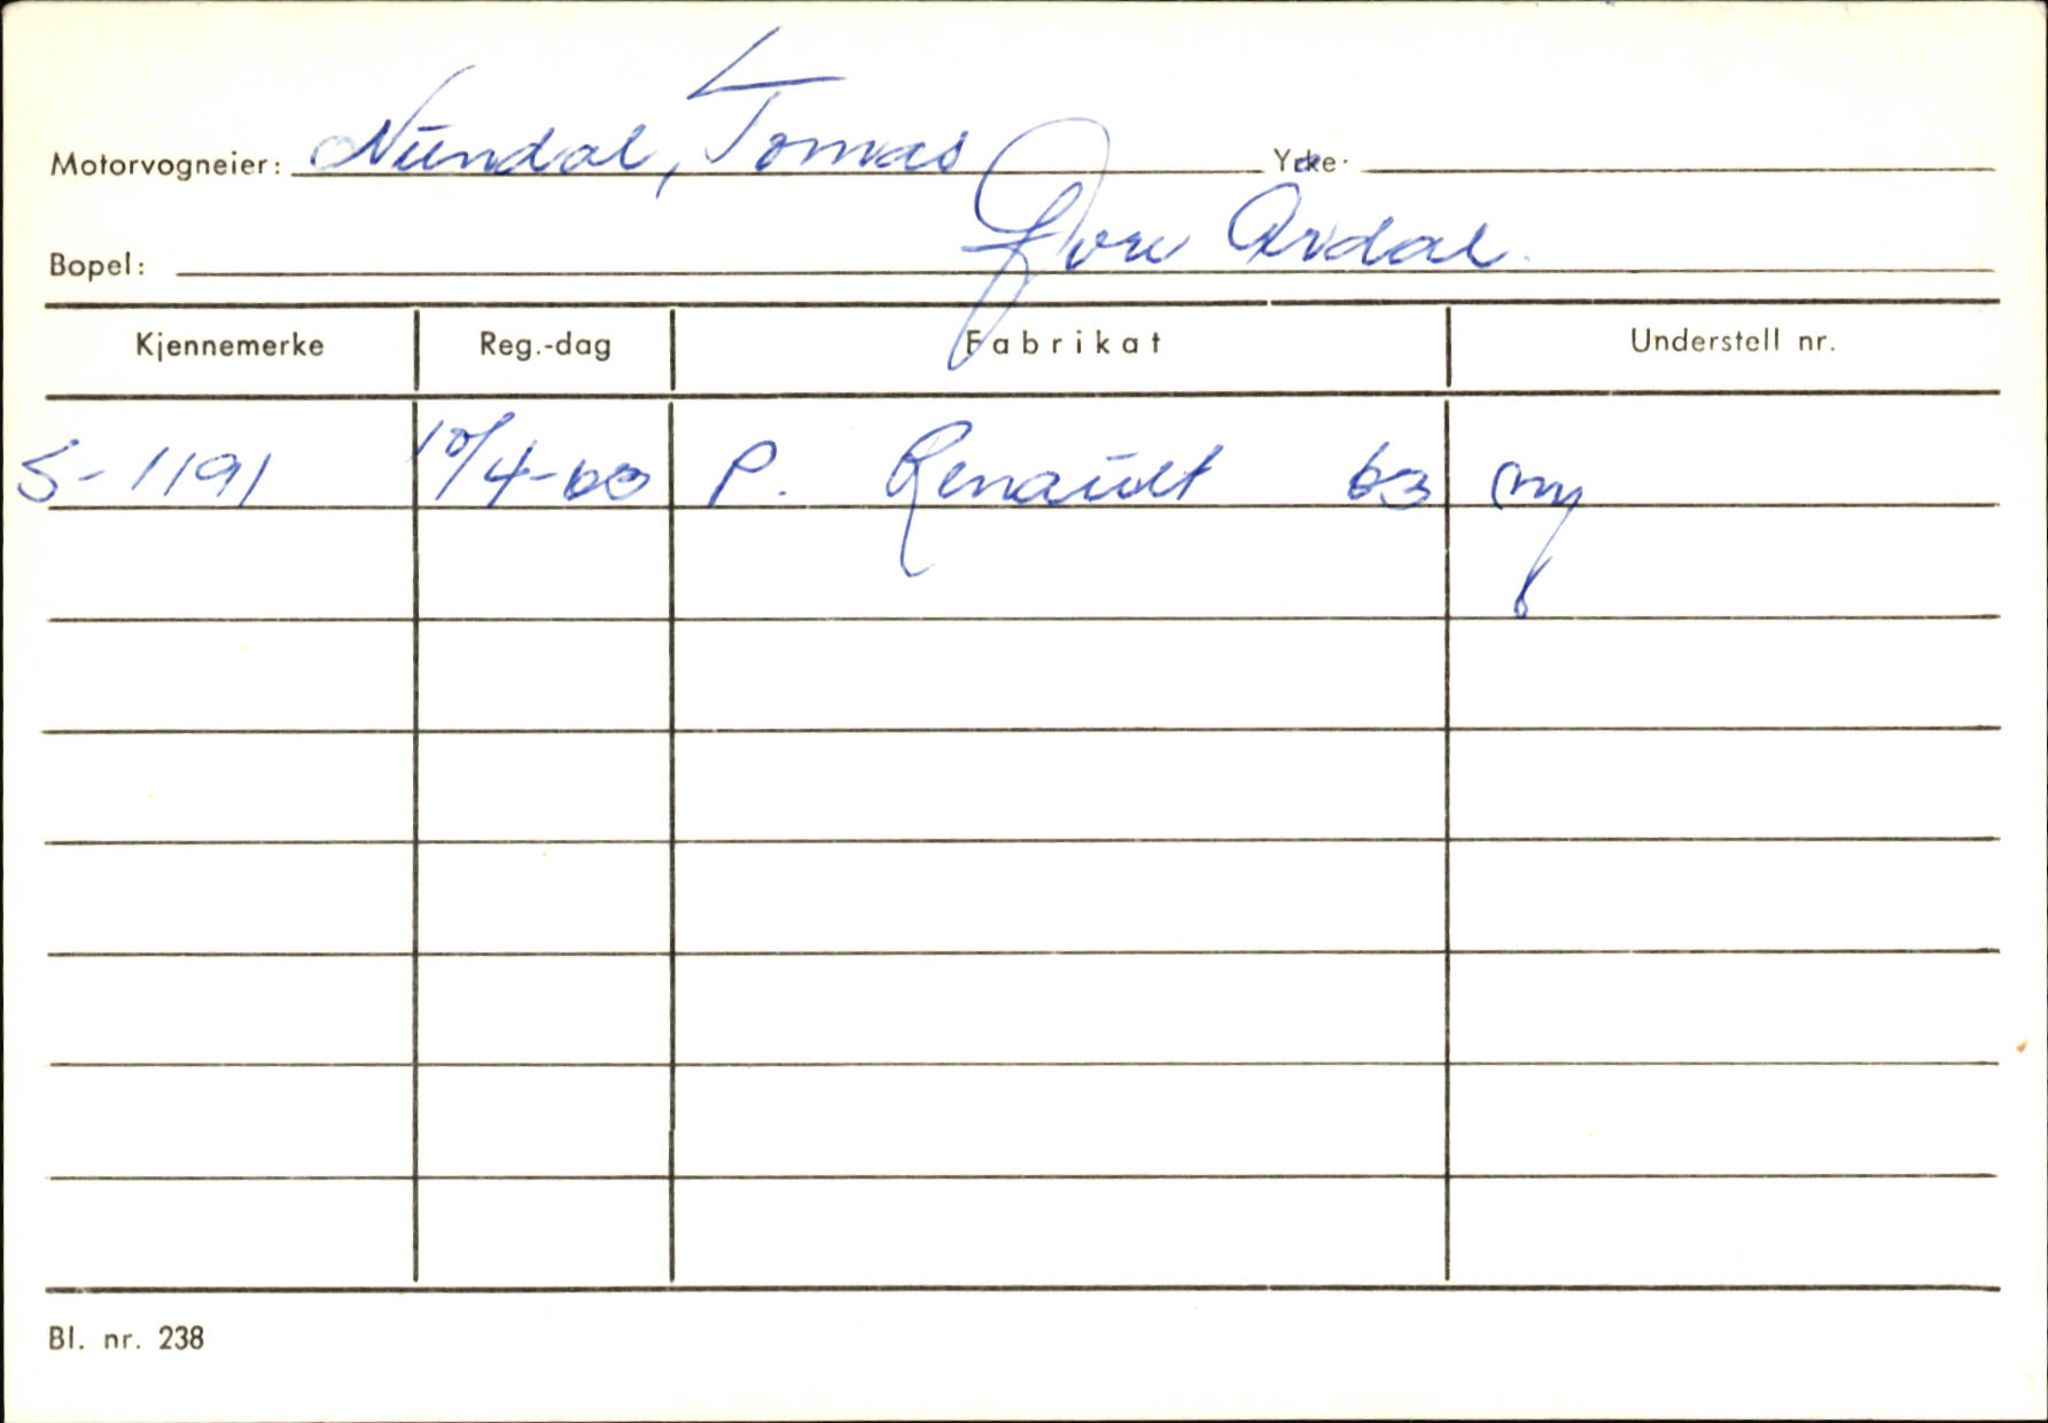 Motorvogneier: Nundal, Tomas Yrke:
Bopel: Øvre Årdal.
Kjennemerke Reg.-dag Fabrikat Understell nr.
S-1191 10/4-63 P. Renault 63 ny
Bl. nr. 238